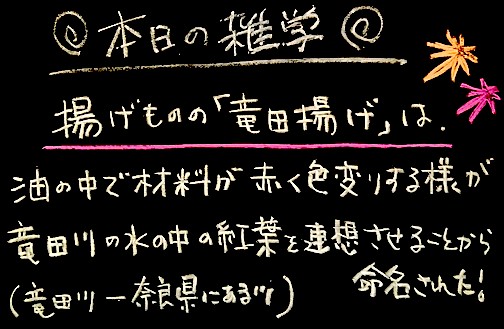 ◎本日の雑学◎
揚げものの「竜田揚げ」は、
油の中で材料が赤く色変りする様が
竜田川の水の中の紅葉を連想させることから
命名された!
(竜田川ー奈良県にある川)